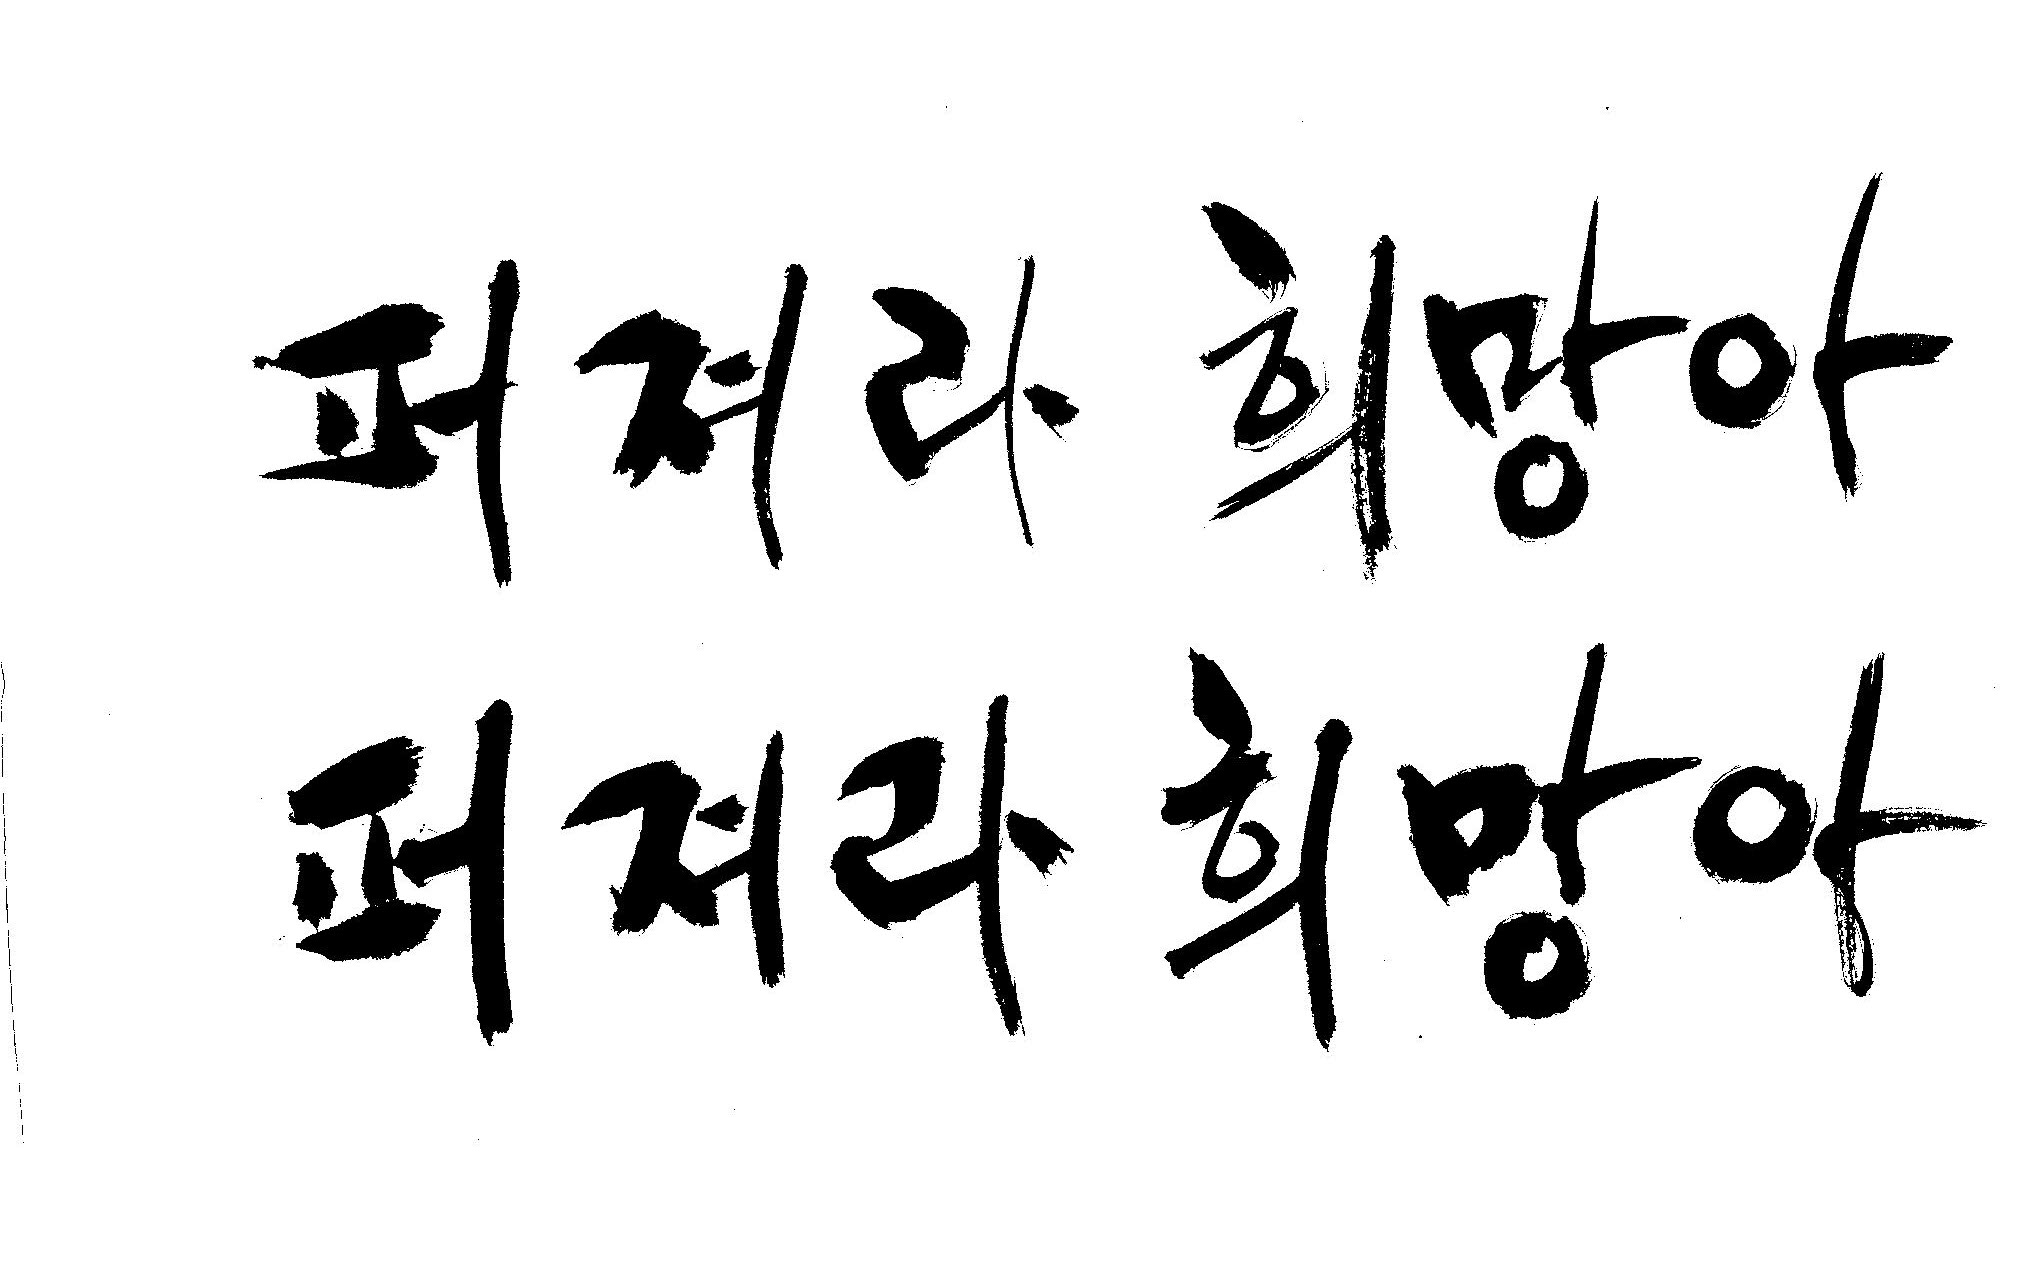 퍼져라 희망아
퍼져라 희망아